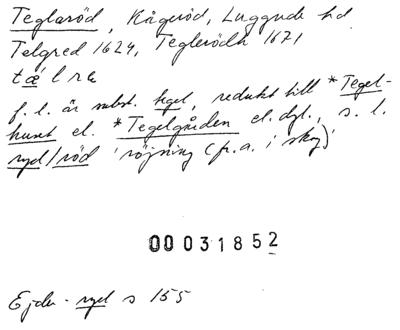 Teglaröd, Kågeröd, Luggude hd
Telgred 1624, Teglerödh 1671
tǽlra
f. l. är subst. tegel, redukt till *Tegel-
huset el. *Tegelgården el. dyl., s. l.
ryd/röd 'röjning (fr. a. i skog)'
00031852
Ejder - ryd s 155